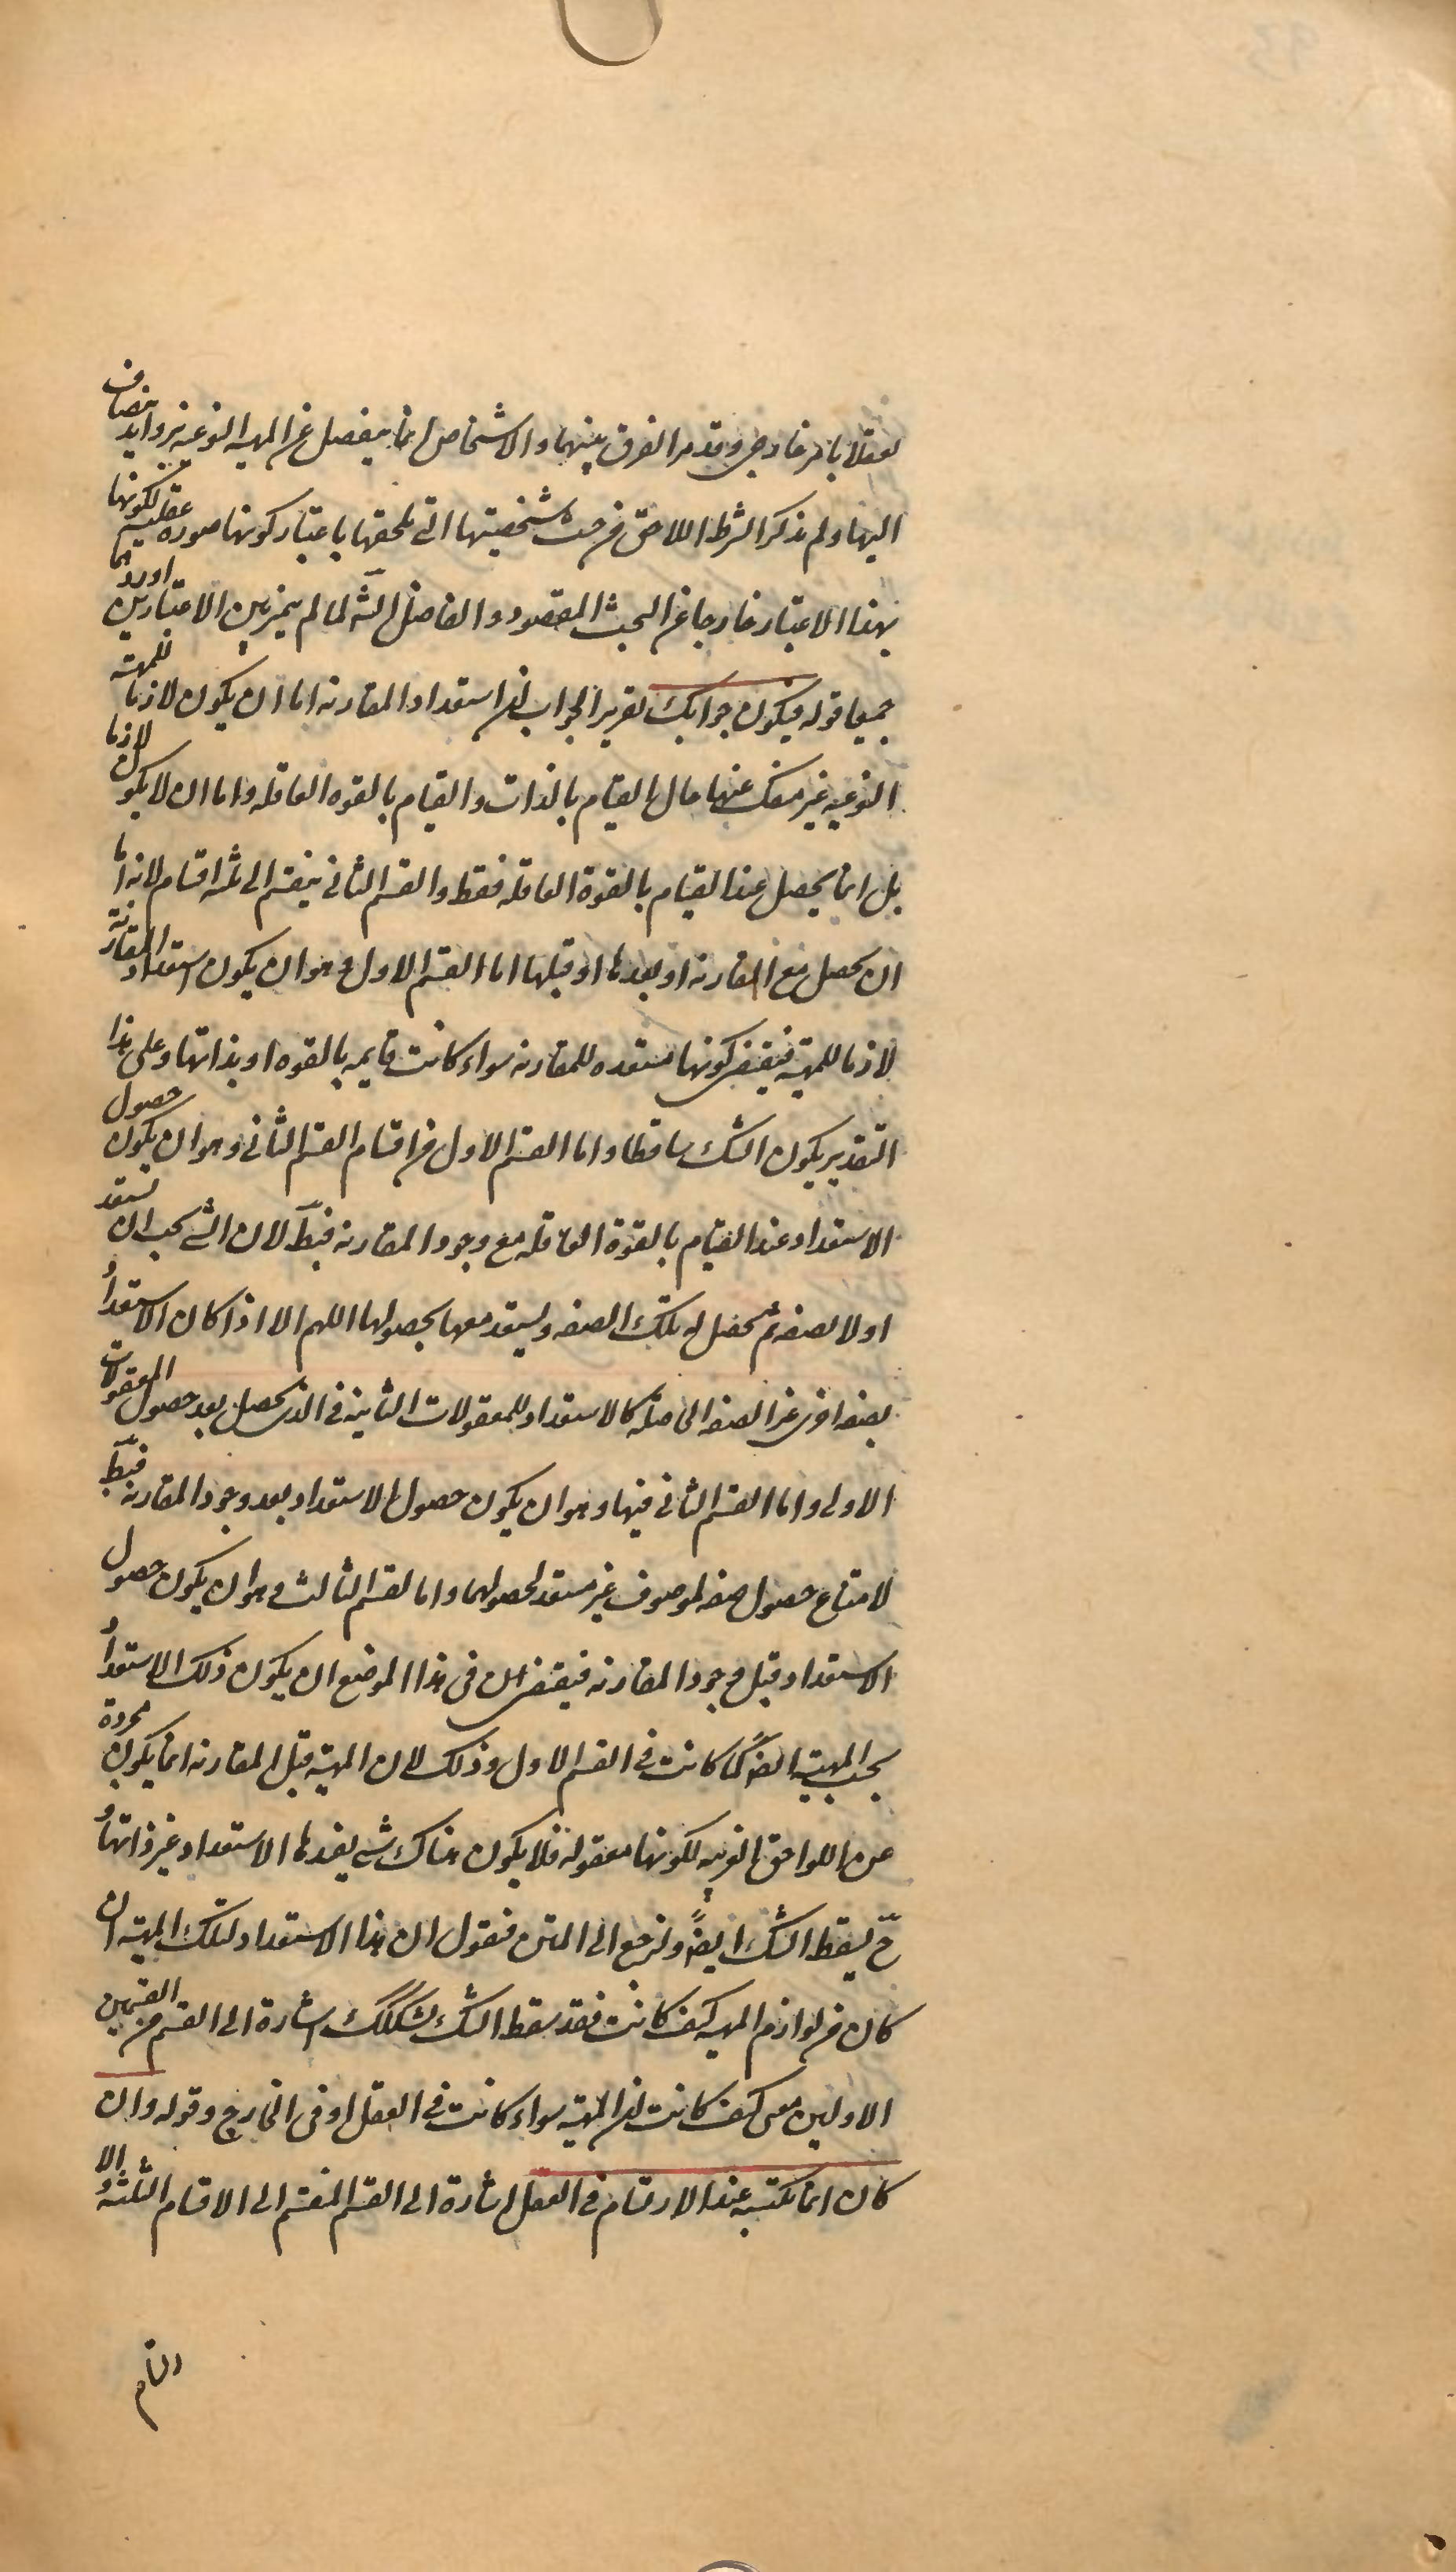 تعقلا بامر خارجى وقد مر الفرق بينهما والاشخاص انما ينفصل عن المهيه النوعيه بزوايد ينضاف
اليها ولم يذكر الشرط اللاحق من حيث شخصيتها التى تلحقها باعتبار كونها صوره عقليه لكونها
بهذا الاعتبار خارجا عن البحث المقصود والفاضل الشه لما لم يميز بين الاعتبارين اوردهما
جميعا قوله فيكون جوابك تقرير الجواب ان استعداد المقارنه اما ان يكون لازما للمهيه
النوعيه غير منفك عنها حال القيام بالذات والقيام بالقوه العاقله واما ان لا يكون لازما
بل انما يحصل عند القيام بالقوة العاقله فقط والقسم الثانى ينقسم الى ثلثه اقسام لانه اما
ان يحصل مع المقارنه او بعدها او قبلها اما القسم الاول وهو ان يكون استعداد المقارنة
لازما للمهيه فيقتضى كونها مستعده للمقارنه سواء كانت قايمه بالقوه او بذاتها وعلى هذا
التقدير يكون الشك ساقطا واما القسم الاول من اقسام القسم الثانى وهو ان يكون حصول
الاستعداد عند القيام بالقوة العاقله مع وجود المقارنه فبط لان الشى يجب ان يستعد
اولا لصفه ثم يحصل له تلك الصفه ويستعد معها بحصولها اللهم الا اذا كان الاستعداد
لصفه اخرى غير الصفه الحاصله كالاستعداد للمعقولات الثانيه فى الذى يحصل بعد حصول المعقولات
الاولى واما القسم الثانى فيها وهو ان يكون حصول الاستعداد بعد وجود المقارنه فبط
لامتناع حصول صفه لموصوف غير مستعد لحصولها واما القسم الثالث وهو ان يكون حصول
الاستعداد قبل وجود المقارنه فيقتضى ان فى هذا الموضع ان يكون ذلك الاستعداد
بحسب المهيه ايضا كما كانت فى القسم الاول وذلك لان المهيه قبل المقارنه انما يكون مجردة
عن اللواحق الغريبه لكونها معقوله فلا يكون هناك شى يفيدها الاستعداد غير ذاتها و
ح يسقط الشك ايضا ولنرجع الى المتن فنقول ان هذا الاستعداد لتلك المهيه ان
كان من لوازم المهيه كيف كانت فقد سقط الشك لشكك اشارة الى القسم من القسمين
الاولين معنى كيف كانت ان المهيه سواء كانت فى العقل او فى الخارج وقوله وان
كان انما تكتسبه عند الارتسام فى العقل اشارة الى القسم المنقسم الى الاقسام الثلثه و الا